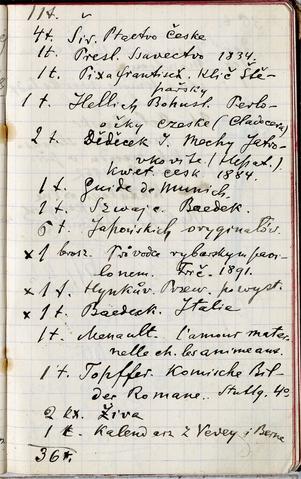 11 t. Š
4 t. Sir. Ptactvo České
1 t. Presl. Ssavectvo 1834.
1 t. Pixa František. Klíč Ště-
pařsky
1 t. Hellich Bohusl. Perlo-
očky czeske (Cladocera)
2 t. Děděcek J. Mechy Jatro-
vkovité (Hepat.)
květ. česk 1884.
1 t. Guide de Munich.
1 t. Szwajc. Baedek.
6 t. Japońskich oryginałów.
x 1 brosz. Průvodce rybarskym pavi-
lonem. Frič. 1891.
x 1 t. Hynkův. Průw. po wyst.
x 1 t. Baedeck. Italie
1 t. Menault. l'amour mater-
nelle ch. les animeaux.
1 t. Topffer. Komische Bil-
der Romane. Stuttg. 4o
2 kx. Živa
1 t. Kalendarz z Vevey i Berna
36 t.